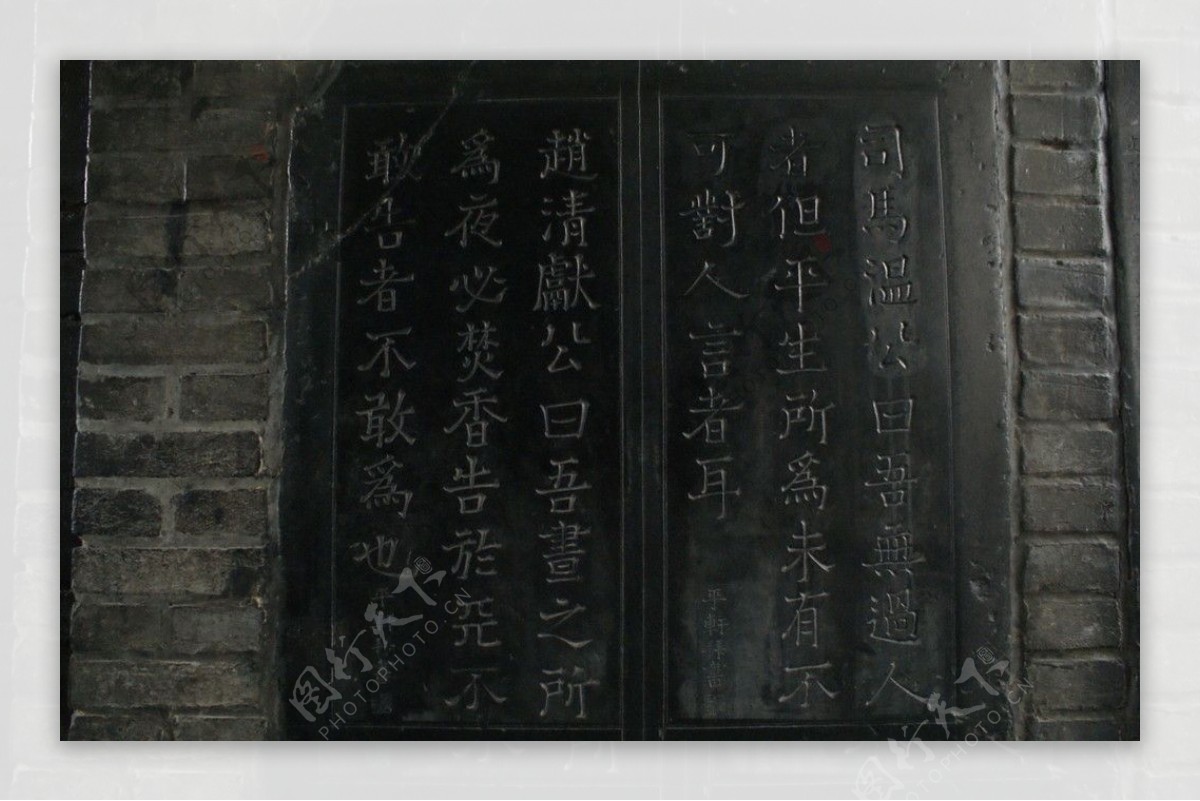 司馬温公曰吾無過人
者但平生所爲未有不
可對人言者耳
平軒
趙清獻公曰吾晝之所
爲夜必焚香告於不
敢告者不敢爲也
图行天下 PHOTOPHOTO.CN
图行天下 PHOTOPHOTO.CN